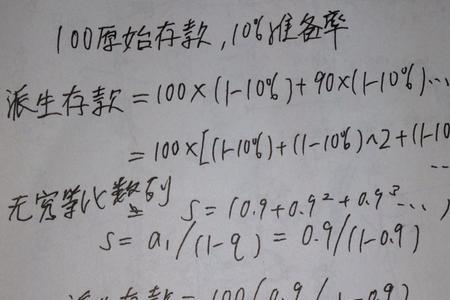 100原始存款,10%准备率
派生存款=100×(1-10%)+90×(1-10%)...
=100×[(1-10%)+(1-10%)^2+(1-10
...
无穷等比数列 S=(0.9+0.9²+0.9³...)
S=a₁/(1-q)=0.9/(1-0.9)
派生存款=100(0.9/1-0.9)